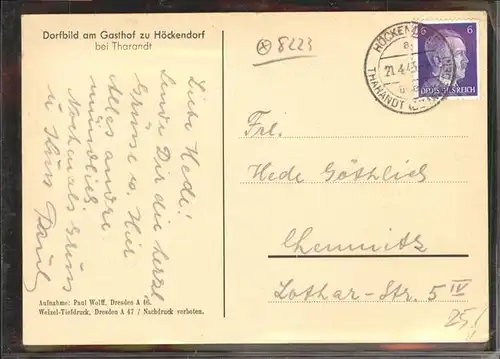 Dorfbild am Gasthof zu Höckendorf
bei Tharandt
Liebe Hede!
Sende Dir die herzl
Grüsse v. Hier
Alles andre
mündlich.
Nochmals Gruss
u Kuss Paul
Aufnahme: Paul Wolff, Dresden A 46.
Welzel-Tiefdruck, Dresden A 47 / Nachdruck verboten.
8223
HÖCKENDORF
a
21.4.43
THARANDT
6 6
DEUTSCHES REICH
Frl.
Hede Göthlich
Chemnitz
Lothar-Str. 5 IV
25!